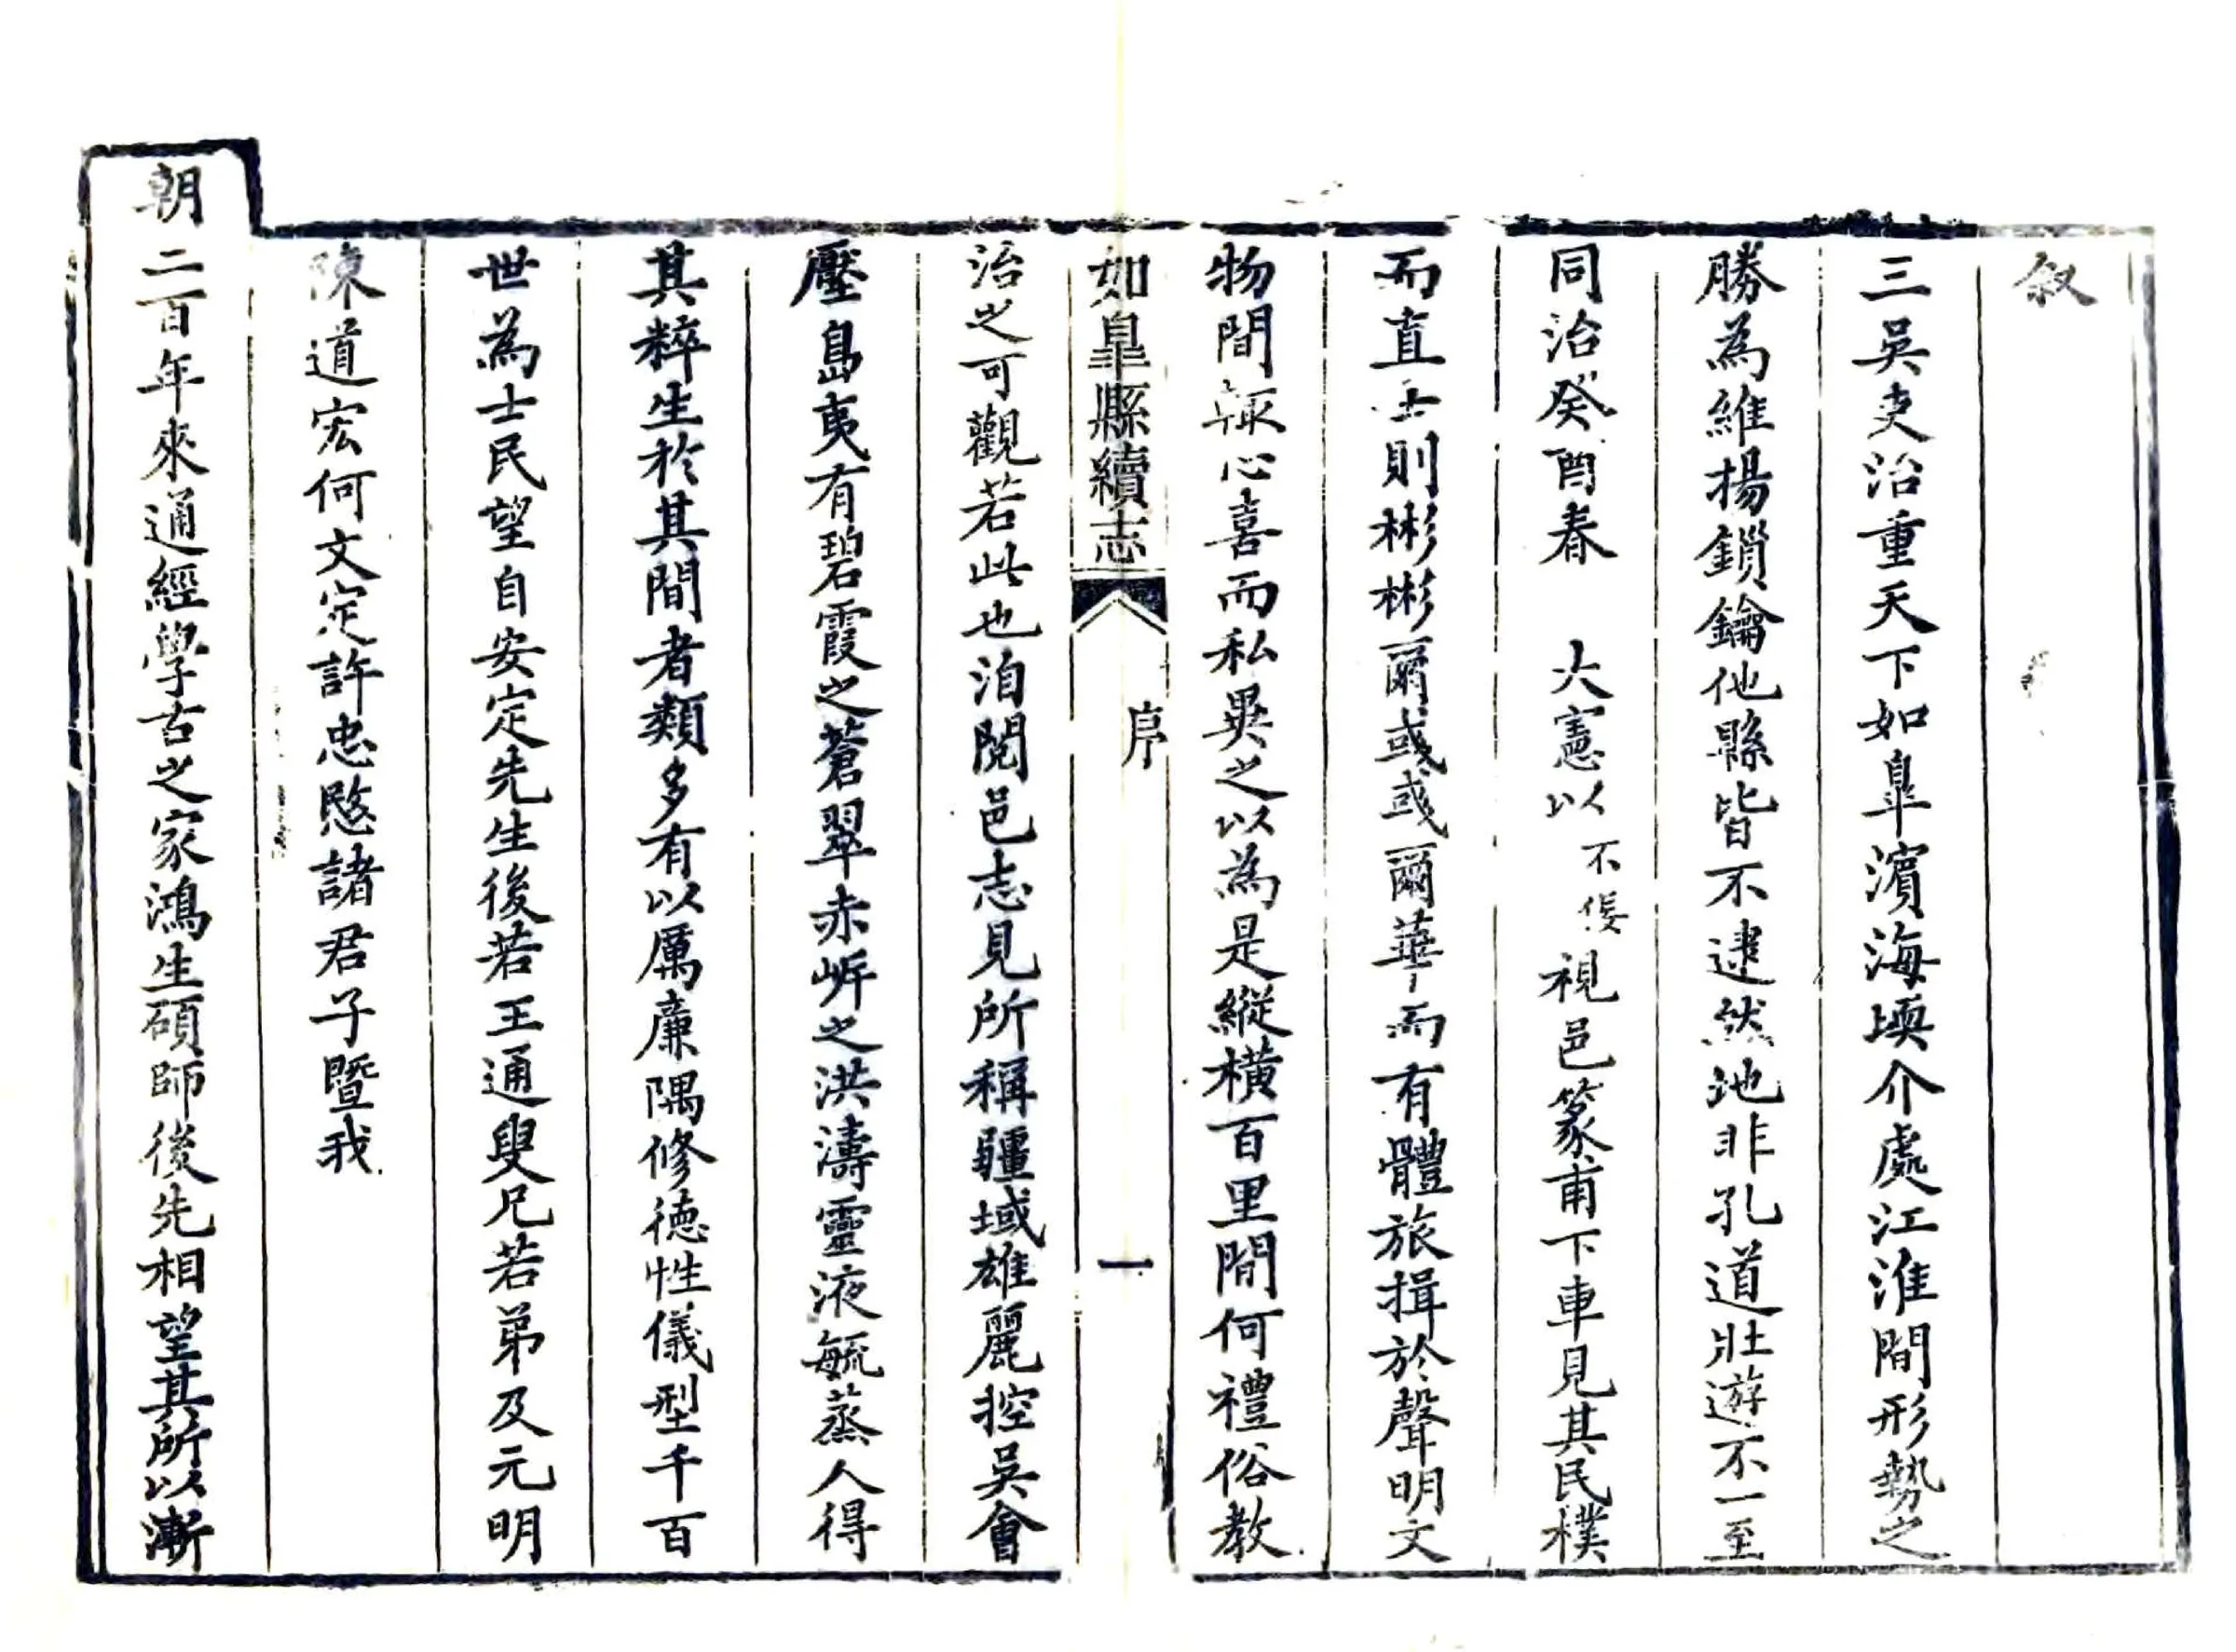 叙
三吳吏治重天下如臯濱海堧介處江淮間形勢之
勝為維揚鎖鑰他縣皆不逮然地非孔道壯遊不一至
同治癸酉春 大憲以不佞視邑篆甫下車見其民樸
而直士則彬彬爾彧彧爾華而有體旅揖於聲明文
物間輒心喜而私異之以為是縱橫百里間何禮俗教
如臯縣續志 序 一
治之可觀若此也洎閱邑志見所稱疆域雄麗控吳會
壓島夷有碧霞之蒼翠赤岍之洪濤靈液毓蒸人得
其粹生於其間者類多有以厲廉隅修德性儀型千百
世為士民望自安定先生後若王通叟兄若弟及元明
陳道宏何文定許忠愍諸君子暨我
朝二百年來通經學古之家鴻生碩師後先相望其所以漸